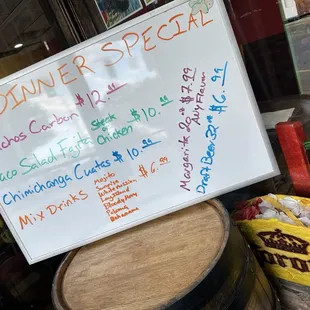 DINNER SPECIAL
Nachos Carbon $12.99
Taco Salad Fajita Steak or Chicken $10.99
Chimichanga Cuatas $10.99
Mix Drinks $6.99
Mojito
Sunrise
White Russian
Long Island
Bloody Mary
Paloma
Bahamama
Margarita $7.99
Any Flavor
Draft Beer $6.99
Corona